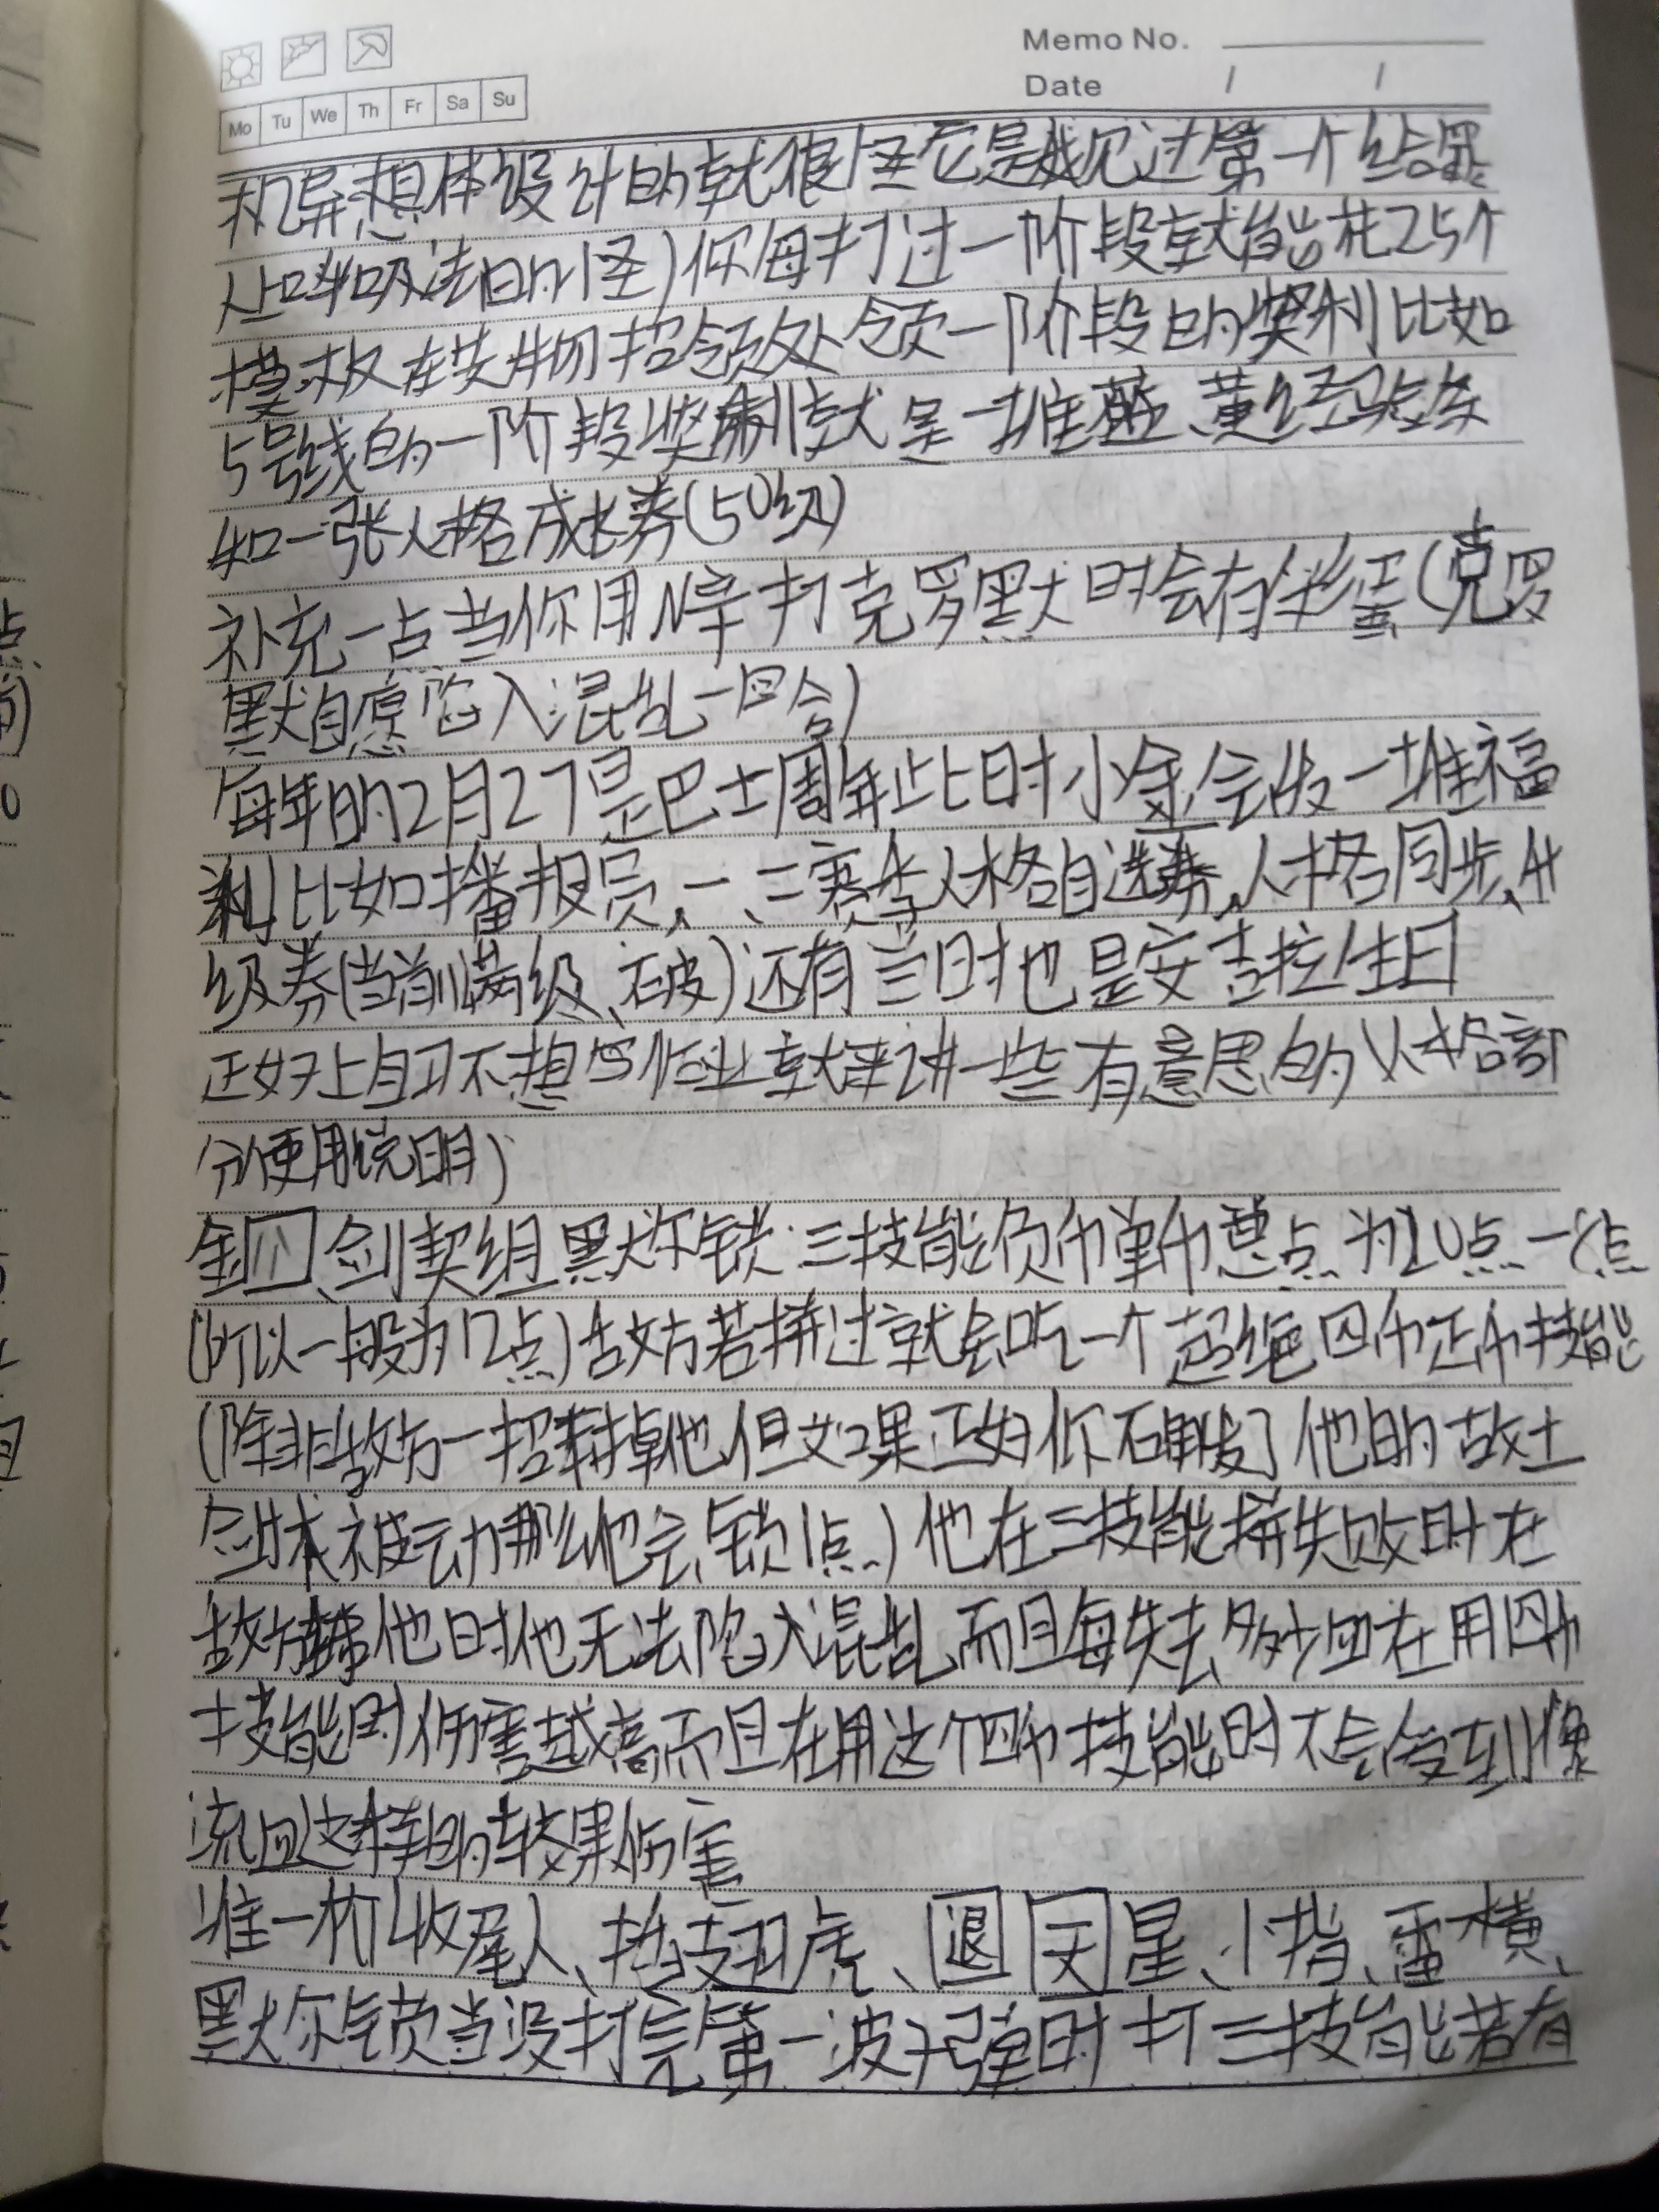 Memo No.
Date / /
Mo Tu We Th Fr Sa Su
机异想体设计的就很怪它是我见过第一个给罪
人叫吸法的怪)你每打过一阶段就能花25个
模板在失物招领处领一阶段的奖利比如
5号线的一阶段奖利就是一堆蓝、黄经验条
和一张人格成长券(50级)
补充一点当你用N辛打克罗默时会有彩蛋(克罗
默自愿陷入混乱一回合)
每年的2月27是巴士周年此时小金会发一堆福
利比如播报员、一、二赛季人格自选券、人格同步、升
级券(当前满级、石皮)还有当时也是安吉拉生日
正好上自习不想写作业就来讲一些有意思的人格部
分使用说明)
金囚、剑契组黑犬尔锁:三技能负币单币要点为20点一(点
(所以一般为12点)敌方若拼过就会吃一个超绝四币正币技能
(除非敌方一招拼掉他,但如果正好你石触发了他的故土
剑术被动那么他会锁1点)他在三技能拼失败时在
敌方揍他时他无法陷入混乱,而且每失去多少血在用四币
技能时伤害越高而且在用这个四币技能时不会受到像
流血这样的效果伤害
堆一枚收尾人、插翅虎、退天星、小指、雷横、
黑犬尔锁当没打完第一波子弹时打三技能若有